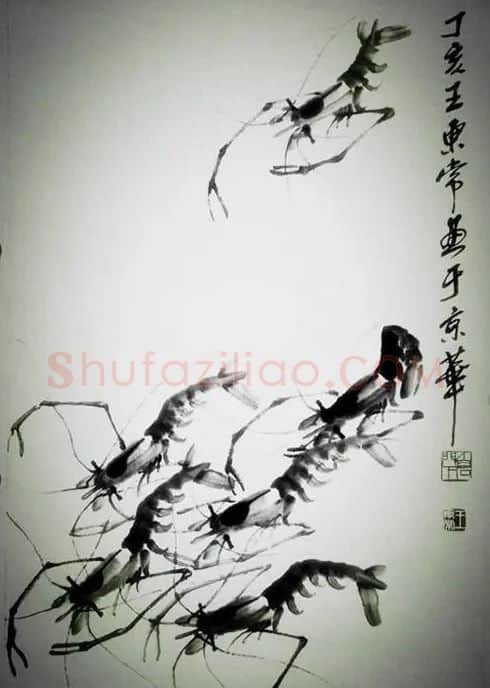 丁亥王东常画于京華
Shufaziliao.COM